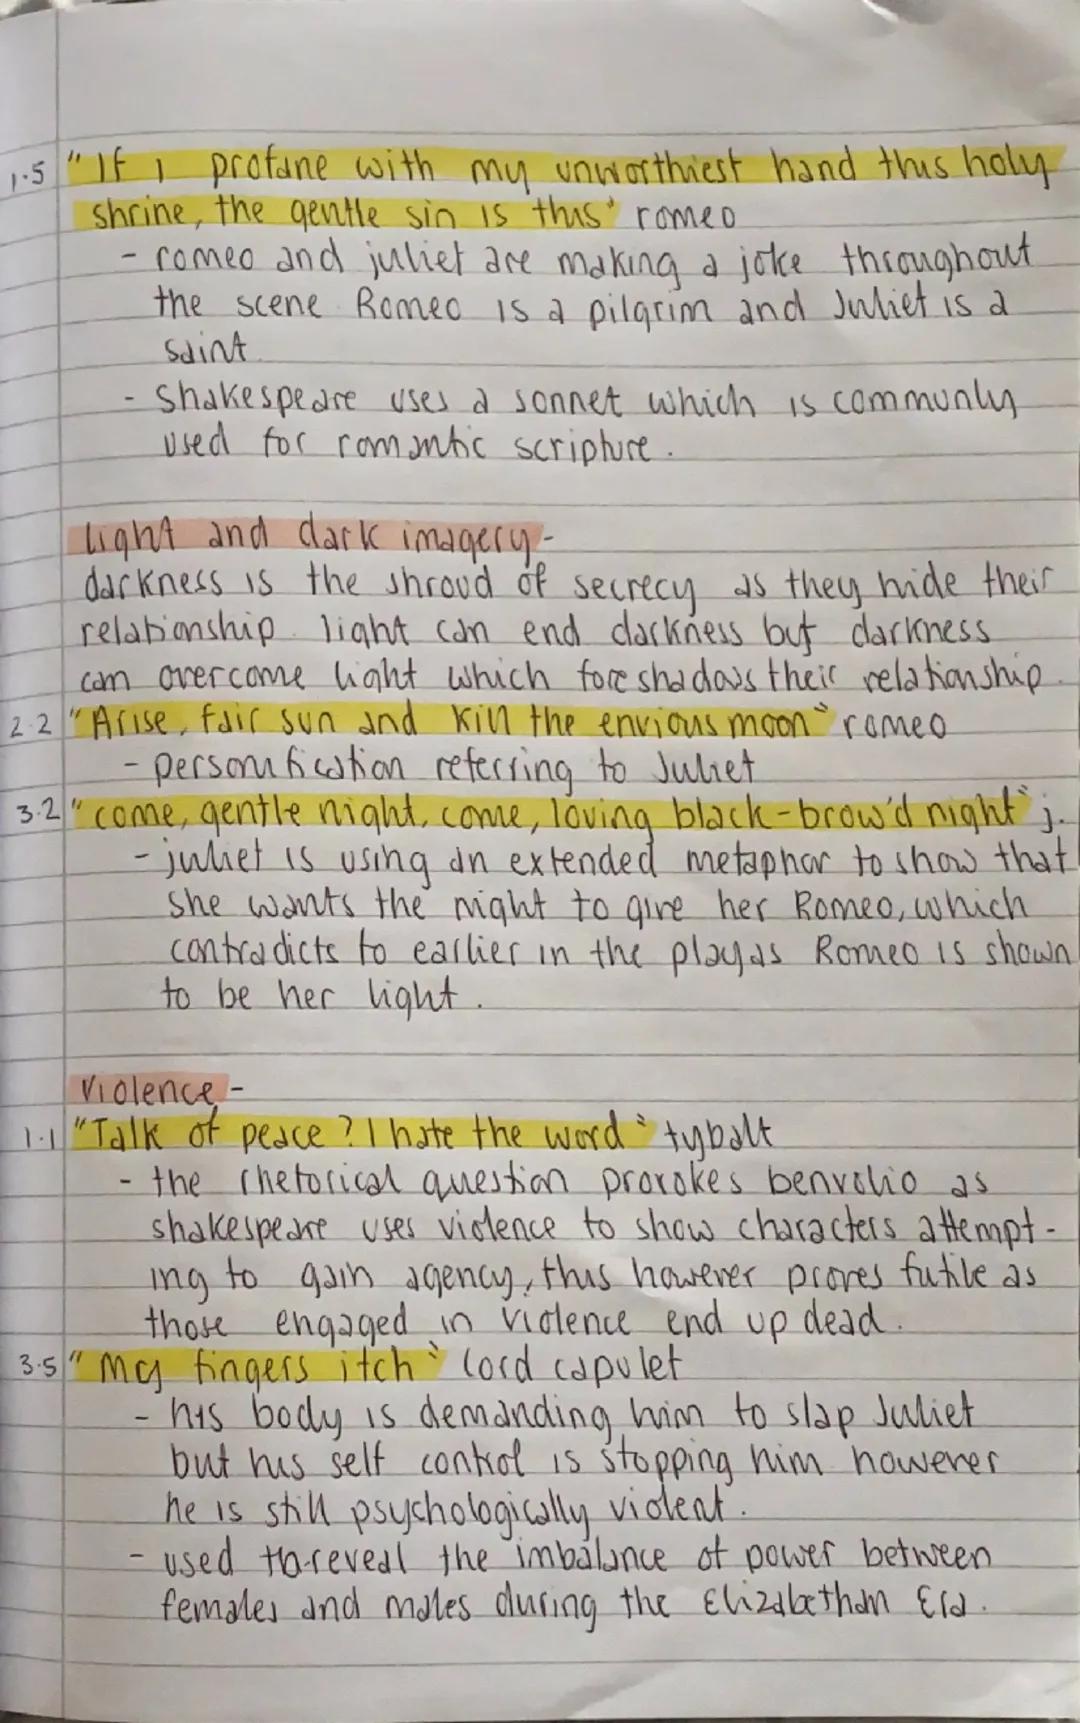 1.5 "If I profane with my unworthiest hand this holy
shrine, the gentle sin is this" romeo
- romeo and juliet are making a joke throughout
the scene Romeo is a pilgrim and Juliet is a
saint.
- Shakespeare uses a sonnet which is commonly
used for romantic scripture.
Light and dark imagery-
darkness is the shroud of secrecy as they hide their
relationship. light can end darkness but darkness
can overcome light which foreshadows their relationship.
2.2 "Arise, fair sun and kill the envious moon" romeo
- personification referring to Juliet
3.2 "come, gentle night, come, loving black-brow'd night" j.
- juliet is using an extended metaphor to show that
she wants the night to give her Romeo, which
contradicts to earlier in the play as Romeo is shown
to be her light.
Violence -
1.1 "Talk of peace? I hate the word" tybalt
- the rhetorical question provokes benvolio as
shakespeare uses violence to show characters attempt-
ing to gain agency, this however proves futile as
those engaged in violence end up dead.
3.5 "My fingers itch" lord capulet
- his body is demanding him to slap Juliet
but his self control is stopping him however
he is still psychologically violent.
- used to reveal the imbalance of power between
females and males during the Elizabethan Era.